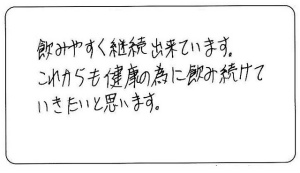 飲みやすく継続出来ています。
これからも健康の為に飲み続けて
いきたいと思います。